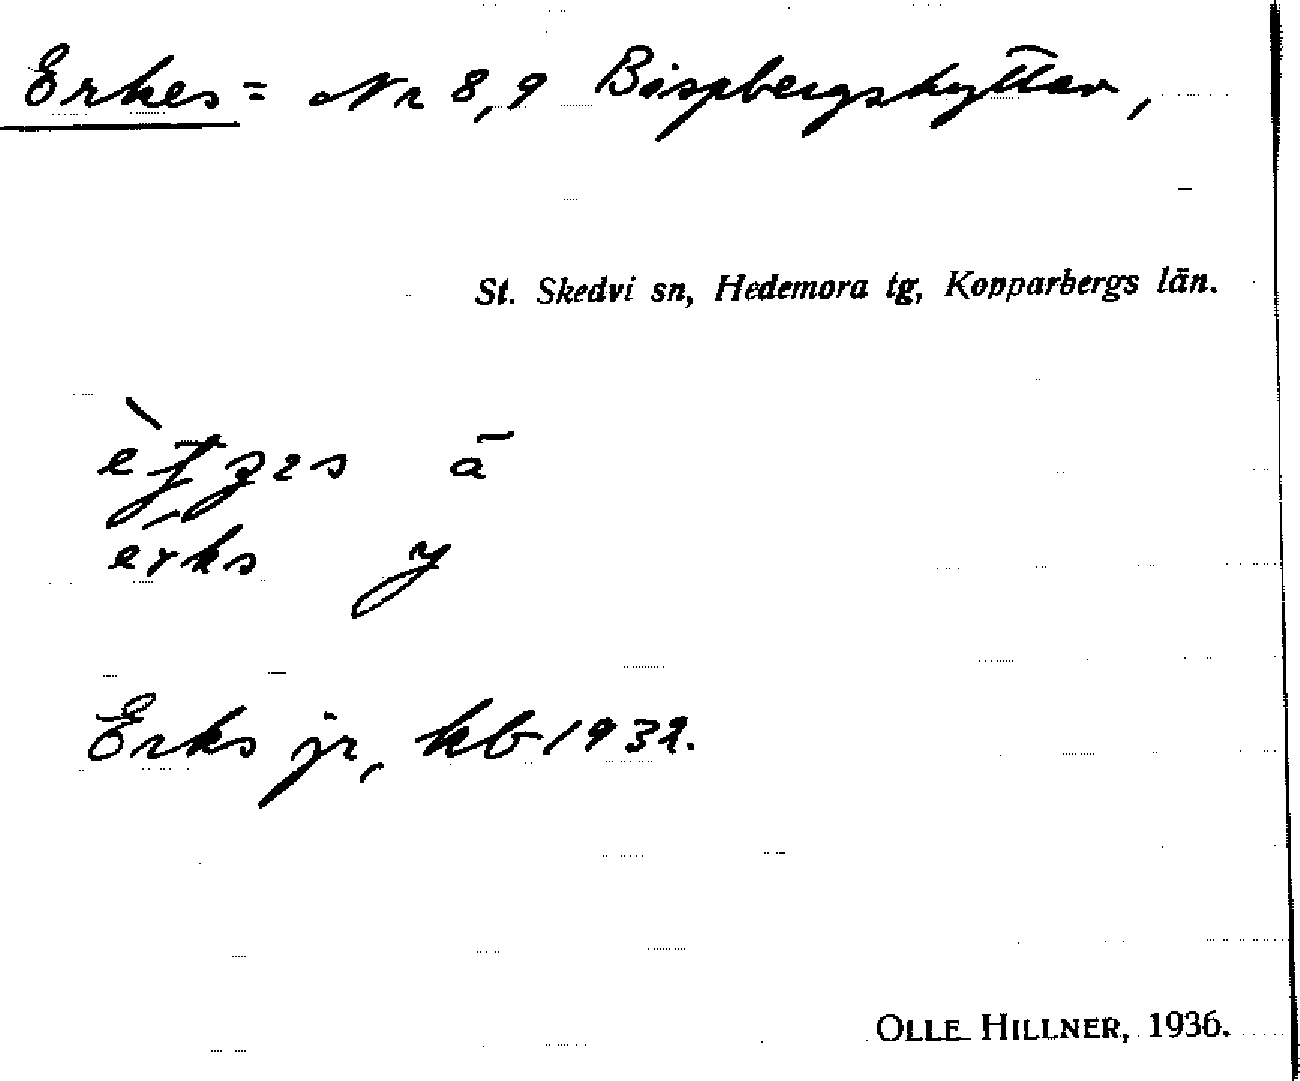 Erkes = Nr 8,9 Bispbergshyttan,
St. Skedvi sn, Hedemora tg, Kopparbergs län.
ā
erks y
Erks jr, kb 1932.
OLLE HILLNER, 1936.